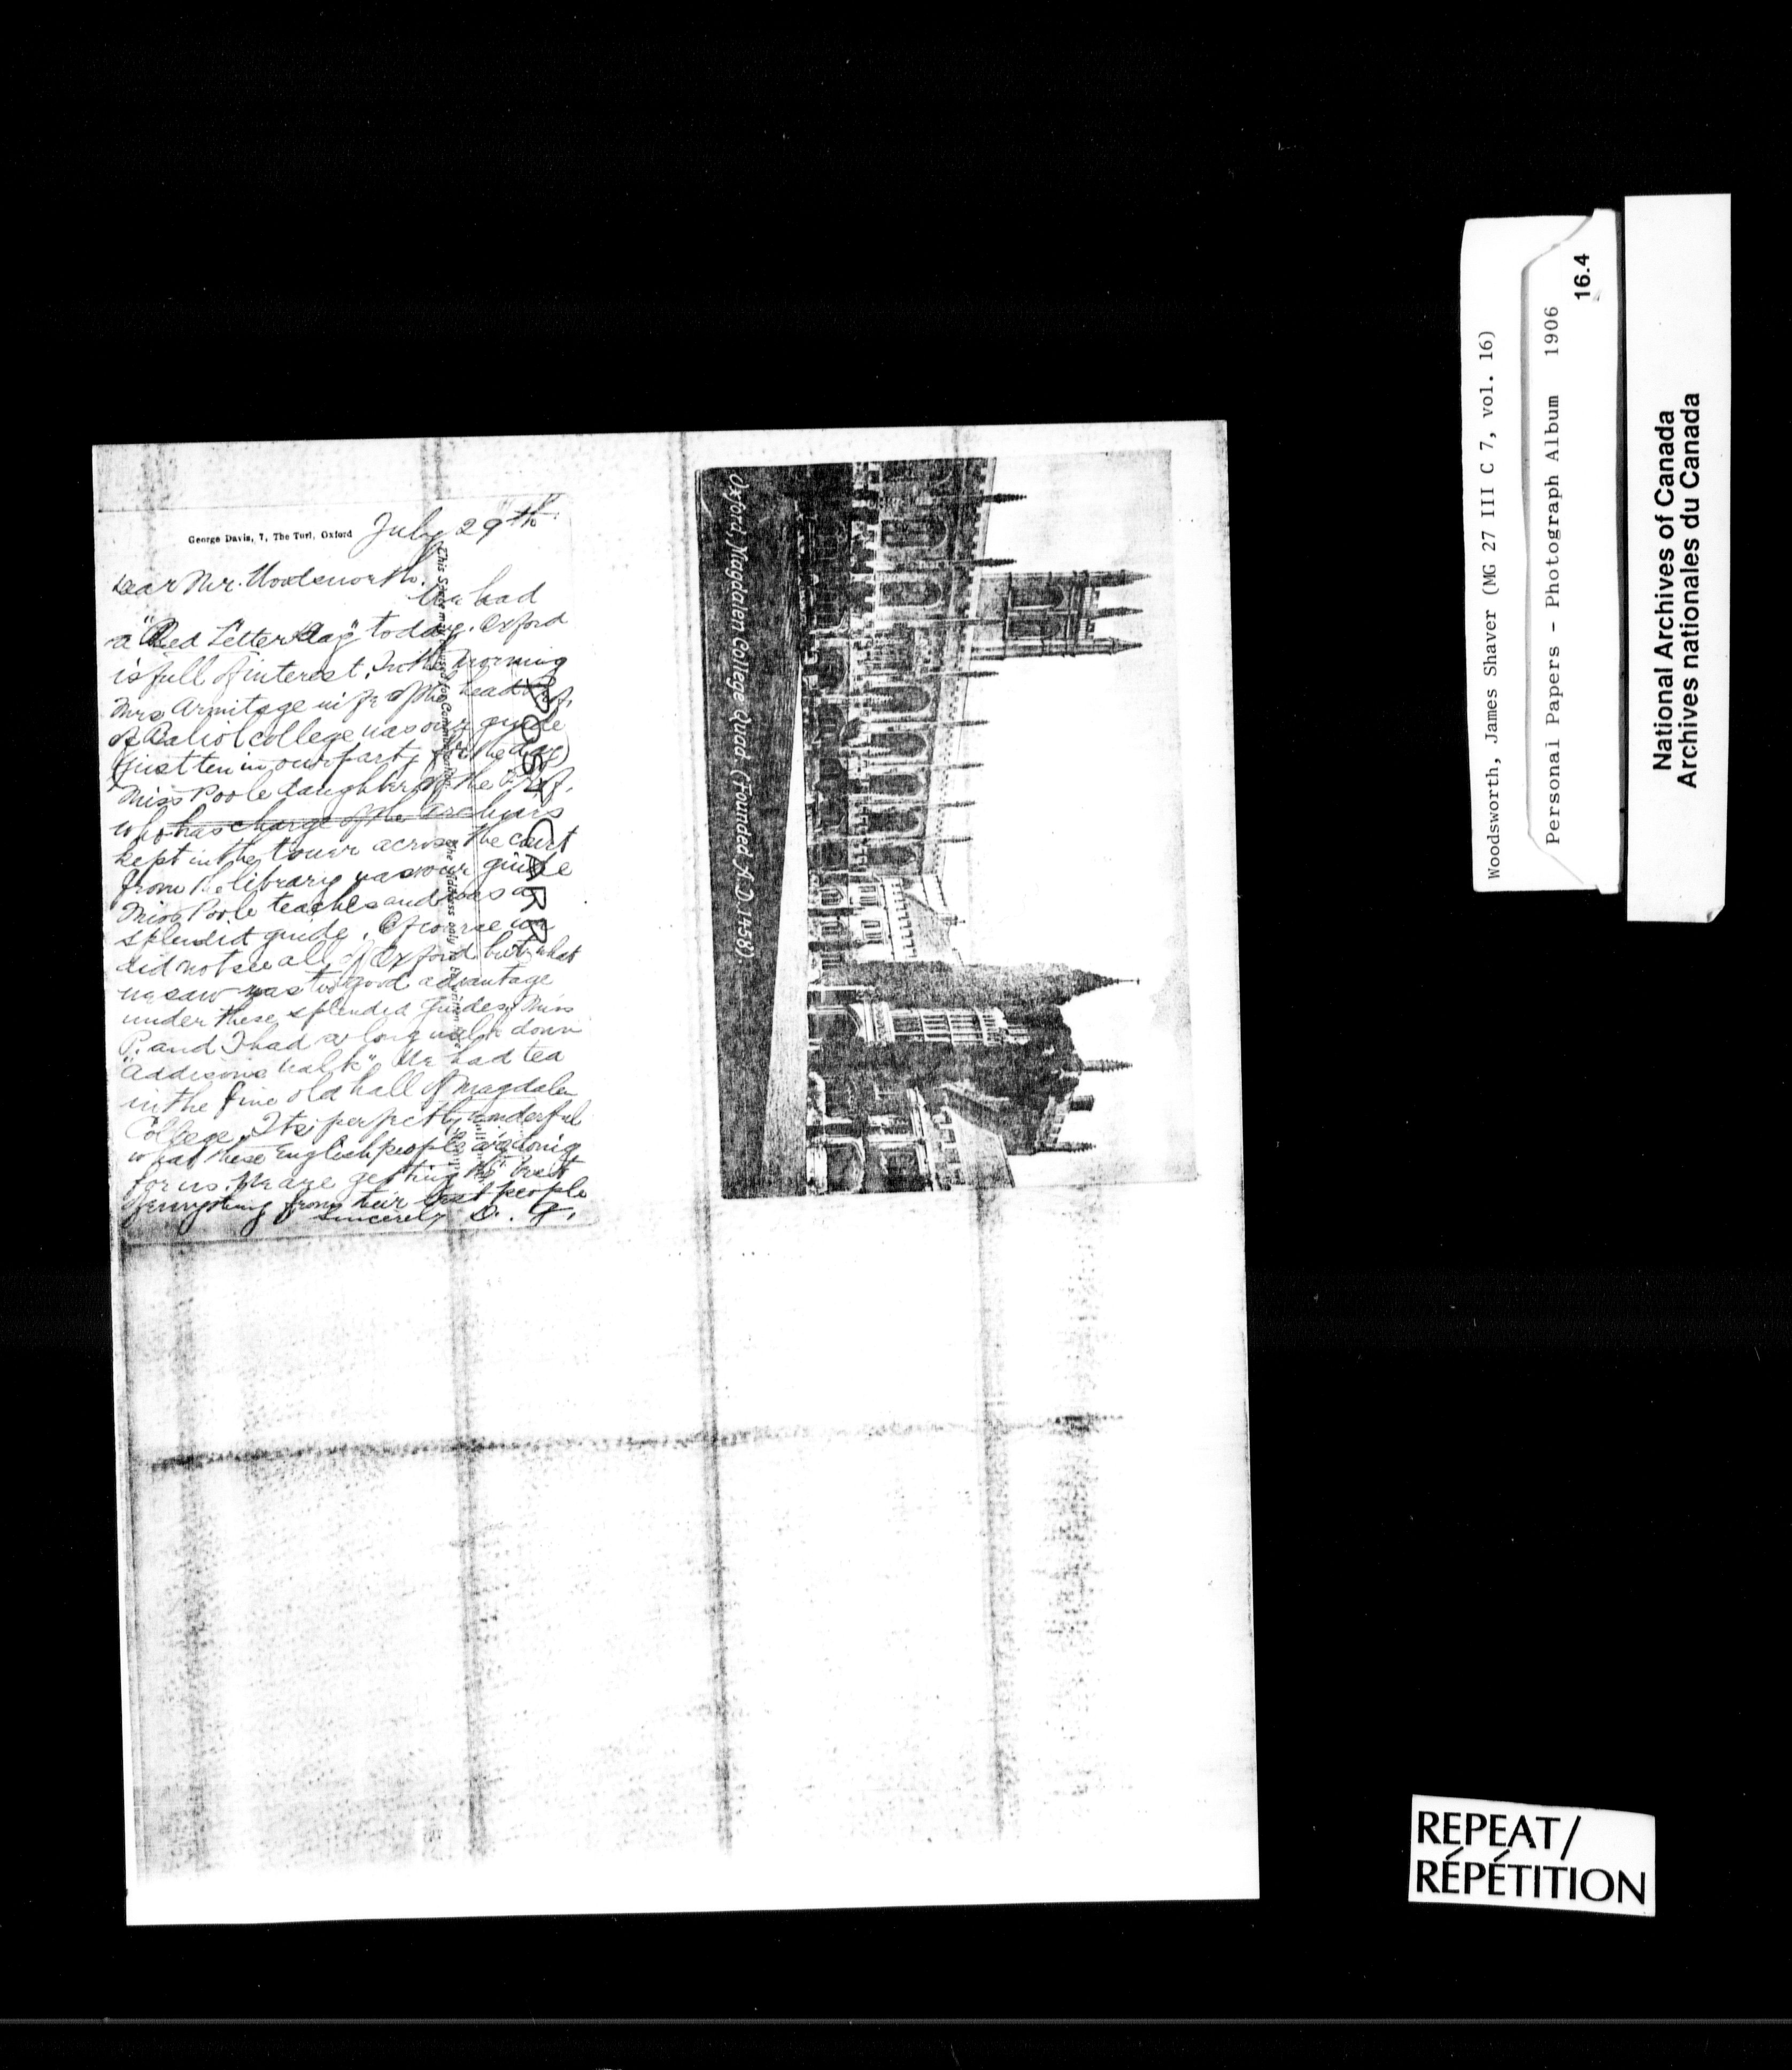 George Davis, 7, The Turl, Oxford
July 29th
Dear Mr. Woodsworth.
We had
a "Red Letter Day" today. Oxford
is full of interest. In the morning
Mrs Armitage wife of the head Prof.
of Baliol college was our guide
(just ten in our party for the day)
Miss Poole daughter of the Prof.
who has charge of the archives
kept in the tower across the court
from the library was our guide
Miss Poole teaches and was a
splendid guide. Of course we
did not see all of Oxford but what
we saw was to good advantage
under these splendid guides. Miss
P. and I had a long walk down
"Addisons Walk" We had tea
in the fine old hall of Magdalen
College. Its perfectly wonderful
what these English people are doing
for us. We are getting the best
of everything from their best people
Sincerely D. F.
POST CARD
This Space may be used for Communication
The Address only to be written here
Oxford, Magdalen College Quad. (Founded A.D. 1458).
Woodsworth, James Shaver (MG 27 III C 7, vol. 16)
Personal Papers - Photograph Album 1906
16.4
National Archives of Canada
Archives nationales du Canada
REPEAT/
RÉPÉTITION